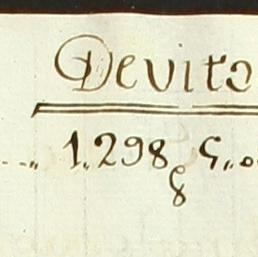 Devito
1„298 8 5„0